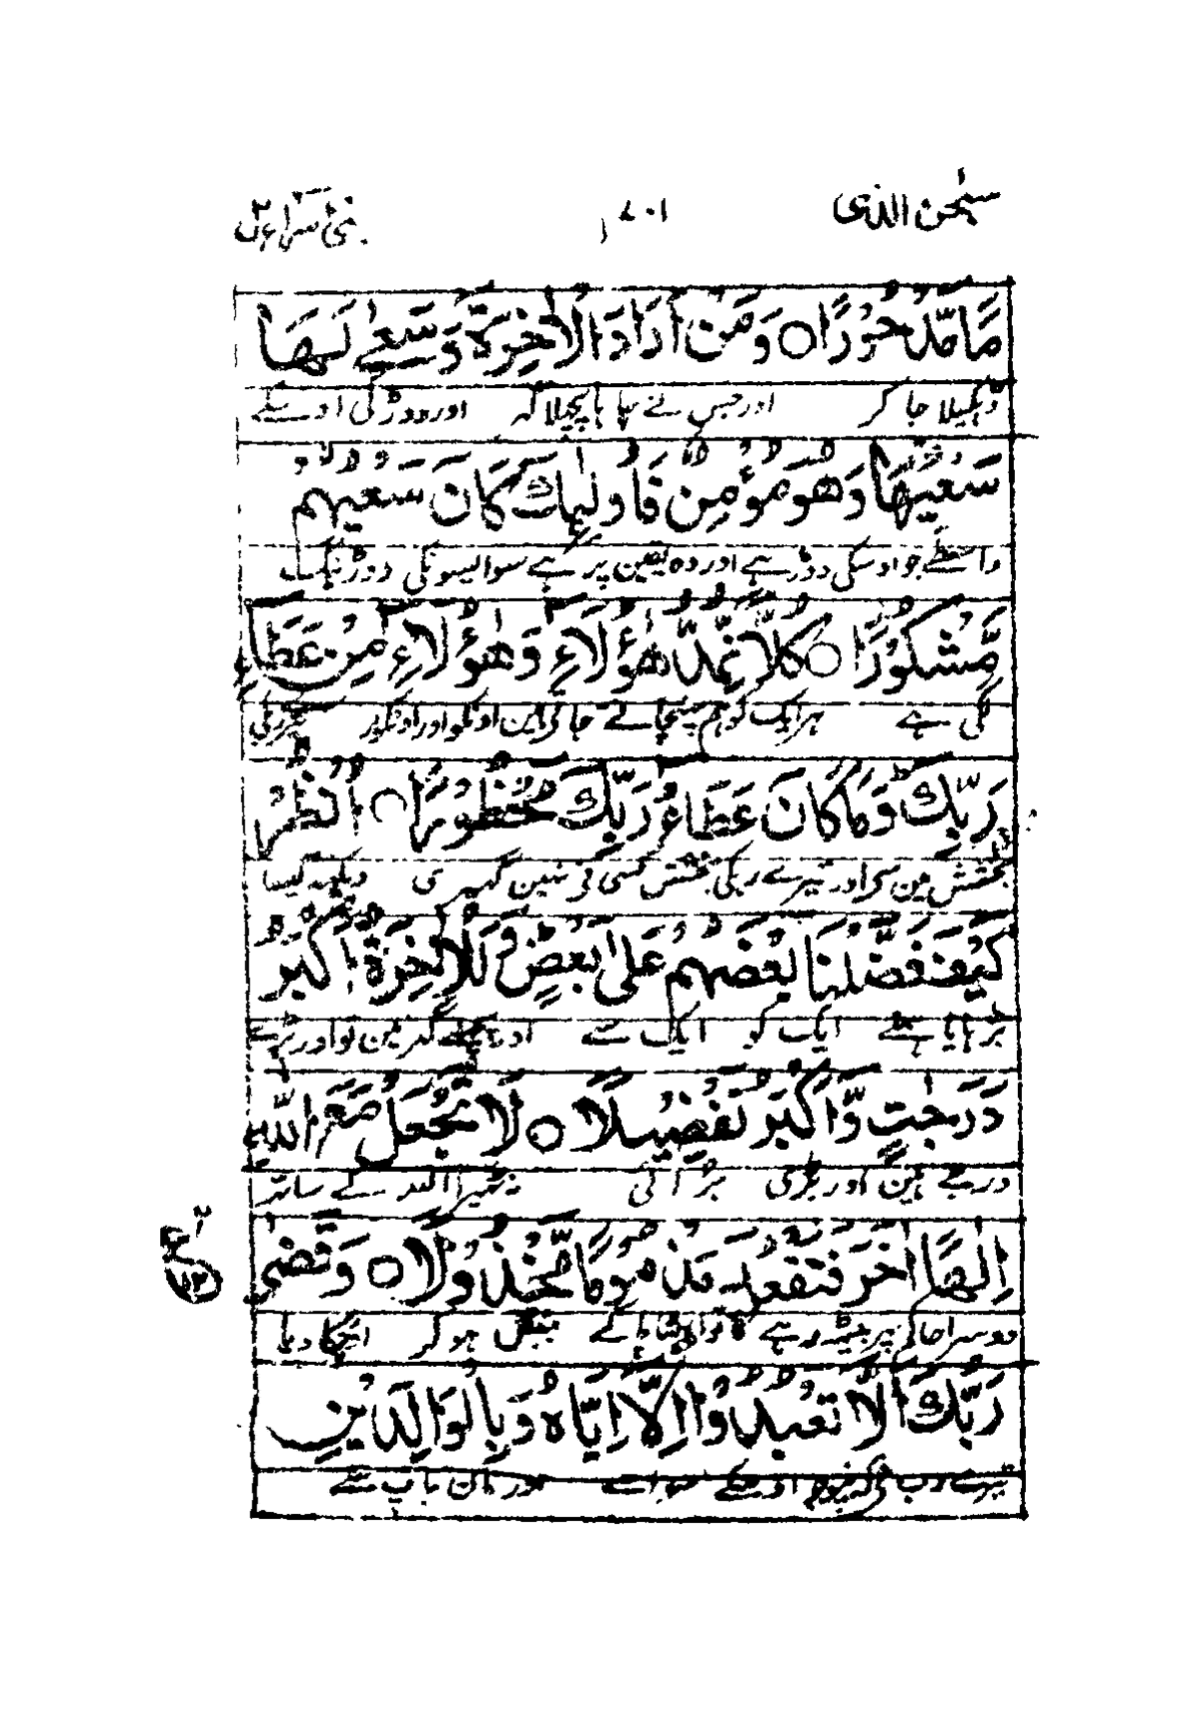 سبحٰن الذی ٧٠١ بنی اسراءیل
مَّدْحُوْرًا ○ وَمَنْ اَرَادَ الْاٰخِرَةَ وَسَعٰى لَهَا
ڈہکیلا جا کر اور جس نے چاہا پچھلا گہر اور دوڑ کی اوسکے
سَعْيَهَا وَهُوَ مُؤْمِنٌ فَاُولٰٓئِكَ كَانَ سَعْيُهُمْ
واسطے جو اوسکی دوڑ ہے اور وہ یقین پر ہے سو ایسونکی دوڑ نیک
مَّشْكُوْرًا ○ كُلًّا نُّمِدُّ هٰٓؤُلَآءِ وَهٰٓؤُلَآءِ مِنْ عَطَآءِ
لگی ہے ہر ایک کو ہم پہنچائے جاتے ہین اونکو اور اونکو تیرے
رَبِّكَ وَمَا كَانَ عَطَآءُ رَبِّكَ مَحْظُوْرًا ○ اُنْظُرْ
بخشش مین سے اور تیرے ربکی بخشش کسی نے نہین گہیری دیکہہ کیسا
كَيْفَ فَضَّلْنَا بَعْضَهُمْ عَلٰى بَعْضٍ وَلَلْاٰخِرَةُ اَكْبَرُ
بڑہایا ہمنے ایک کو ایک سے اور پچھلے گہر مین تو اور بڑے
دَرَجٰتٍ وَّاَكْبَرُ تَفْضِيْلًا ○ لَا تَجْعَلْ مَعَ اللّٰهِ
درجے ہین اور بڑی بڑائی نہ ٹہیرا اللہ کے ساتہہ
اِلٰهًا اٰخَرَ فَتَقْعُدَ مَذْمُوْمًا مَّخْذُوْلًا ○ وَقَضٰى
دوسرا حاکم پہر بیٹہہ رہے گا تو بیکس ہو کر اور چکا دیا
رَبُّكَ اَلَّا تَعْبُدُوْٓا اِلَّآ اِيَّاهُ وَبِالْوَالِدَيْنِ
تیرے رب نے کہ نہ پوجو اوسکے سوائے اور مان باپ سے
٢
ع